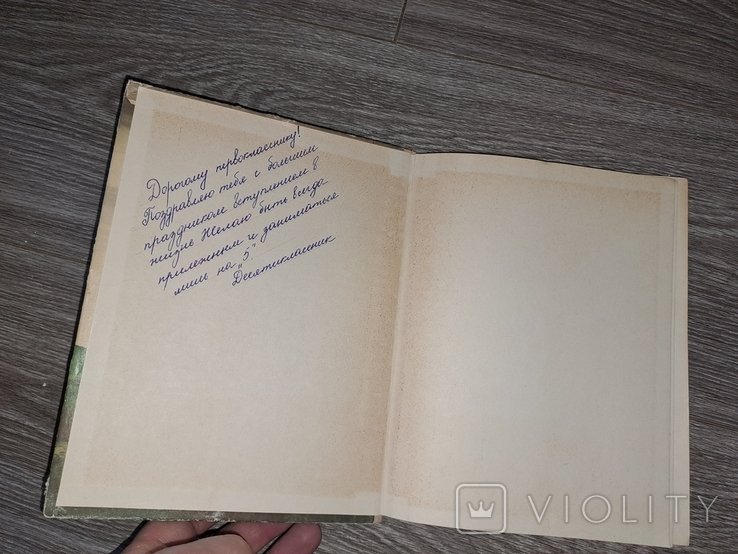 Дорогому первокласнику!
Поздравляю тебя с большим
праздником вступлением в
жизнь Желаю быть всегда
прилежным и заниматься
лишь на "5".
Десятиклассник
VIOLITY